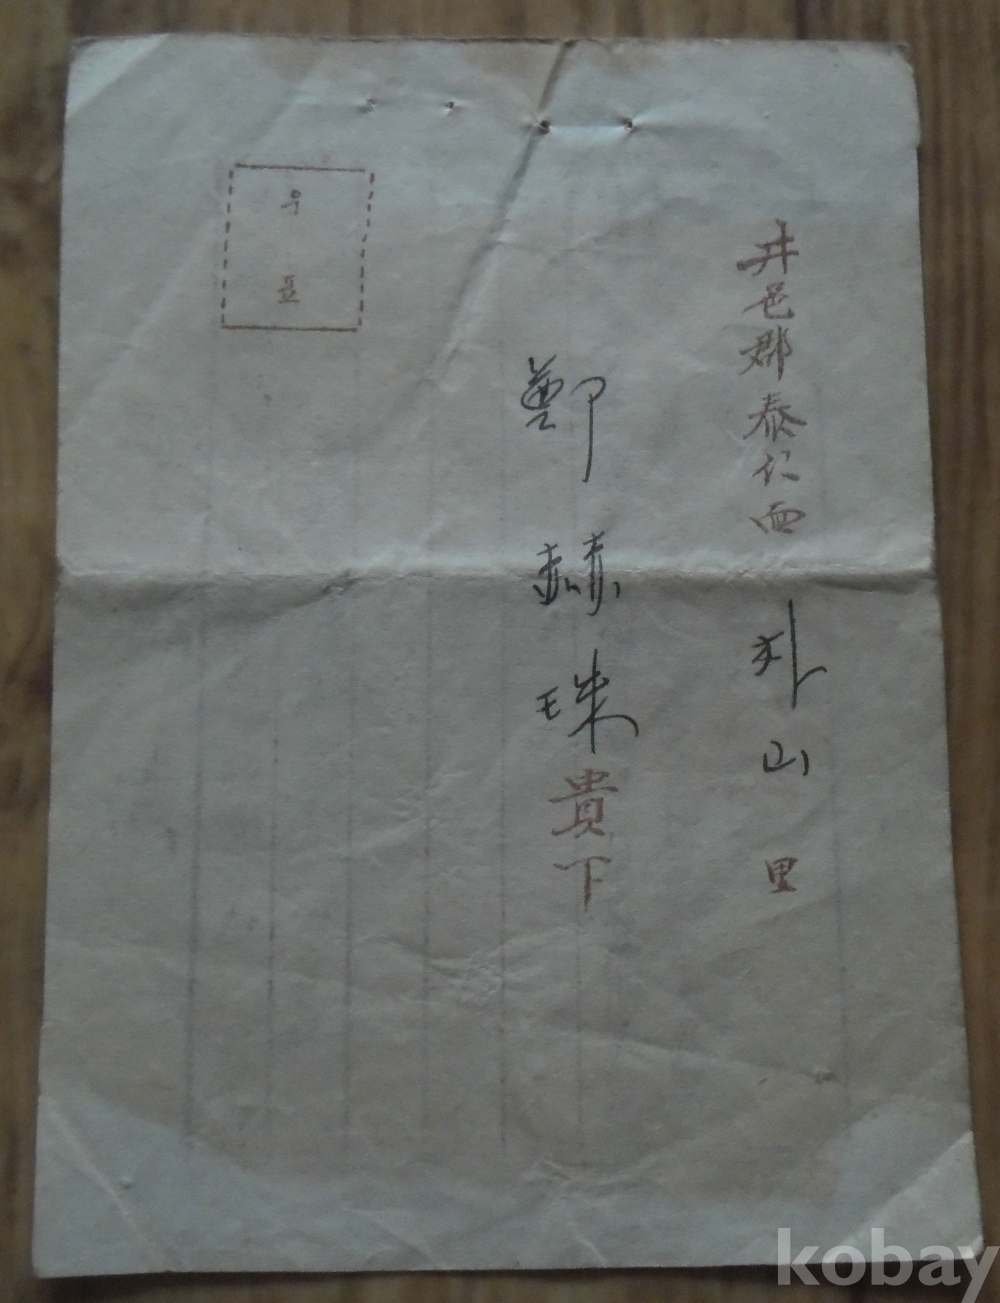 井邑郡泰仁面 外山里
鄭赫珠貴下
우표
kobay